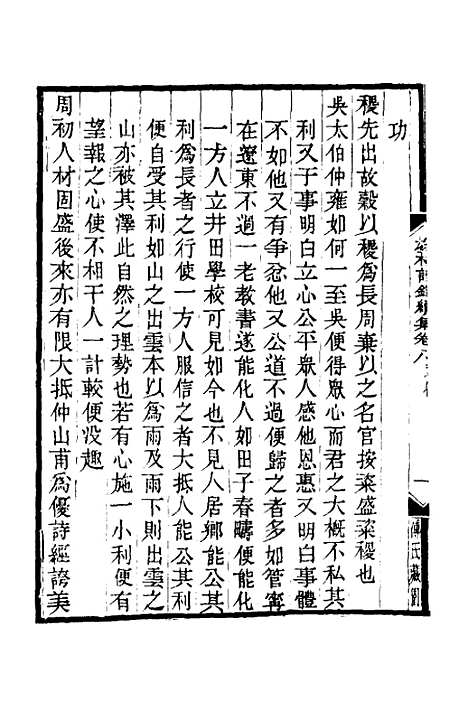 功
稷先出故穀以稷爲長周棄以之名官按粢盛粢稷也
吳太伯仲雍如何一至吳便得眾心而君之大槪不私其
利又于事明白立心公平眾人感他恩惠又明白事體
不如他又有爭忿他又公道不過便歸之者多如管寧
在遼東不過一老教書遂能化人如田子春疇便能化
一方人立井田學校可見如今也不見人居鄕能公其
利爲長者之行使一方人服信之者大抵人能公其利
便自受其利如山之出雲本以爲雨及雨下則出雲之
山亦被其澤此自然之理勢也若有心施一小利便有
望報之心使不相干人一計較便没趣
周初人材固盛後來亦有限大抵仲山甫爲優詩經誇美
榕村語錄續集卷八
一
傅氏藏園